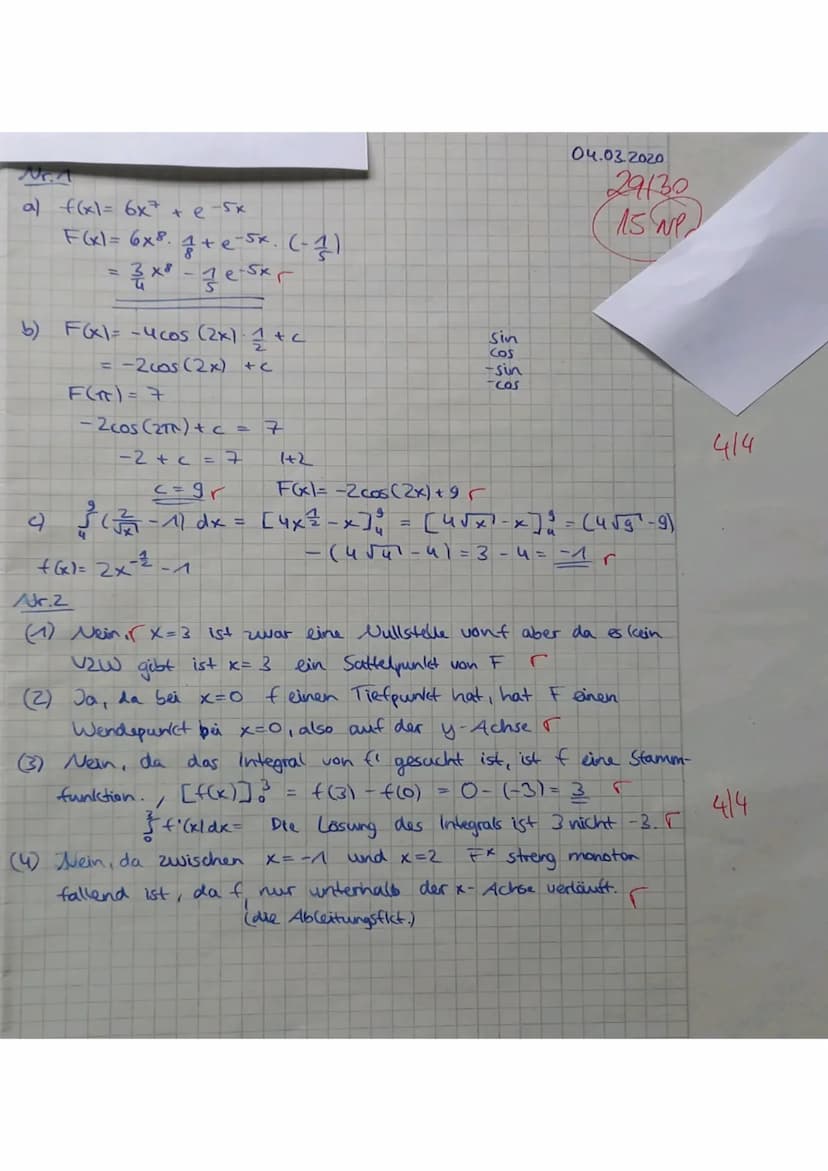 04.03.2020
29/30
15 NP.
Nr. 1
a) f(x) = 6x⁷ + e^-5x
F(x) = 6x⁸ · 1/8 + e^-5x · (-1/5)
= 3/4 x⁸ - 1/5 e^-5x r
b) F(x) = -4cos(2x) · 1/2 + c
= -2cos(2x) + c
F(π) = 7
-2cos(2π) + c = 7
-2 + c = 7 |+2
c = 9 r F(x) = -2cos(2x) + 9 r
sin
cos
-sin
-cos
4/4
c) ₄∫⁹ (2/√x - 1) dx = [4x^1/2 - x]₄⁹ = [4√x - x]₄⁹ = (4√9 - 9)
- (4√4 - 4) = 3 - 4 = -1 r
f(x) = 2x^-1/2 - 1
Nr. 2
(1) Nein, r x=3 ist zwar eine Nullstelle von f aber da es kein
VZW gibt ist x=3 ein Sattelpunkt von F r
(2) Ja, da bei x=0 f einen Tiefpunkt hat, hat F einen
Wendepunkt bei x=0, also auf der y-Achse r
(3) Nein, da das Integral von f' gesucht ist, ist f eine Stamm-
funktion. , [f(x)]₀³ = f(3) - f(0) = 0 - (-3) = 3 r
4/4
₀∫³ f'(x) dx = Die Lösung des Integrals ist 3 nicht -3. r
(4) Nein, da zwischen x=-1 und x=2 F* streng monoton
fallend ist, da f nur unterhalb der x-Achse verläuft. r
(die Ableitungsfkt.)